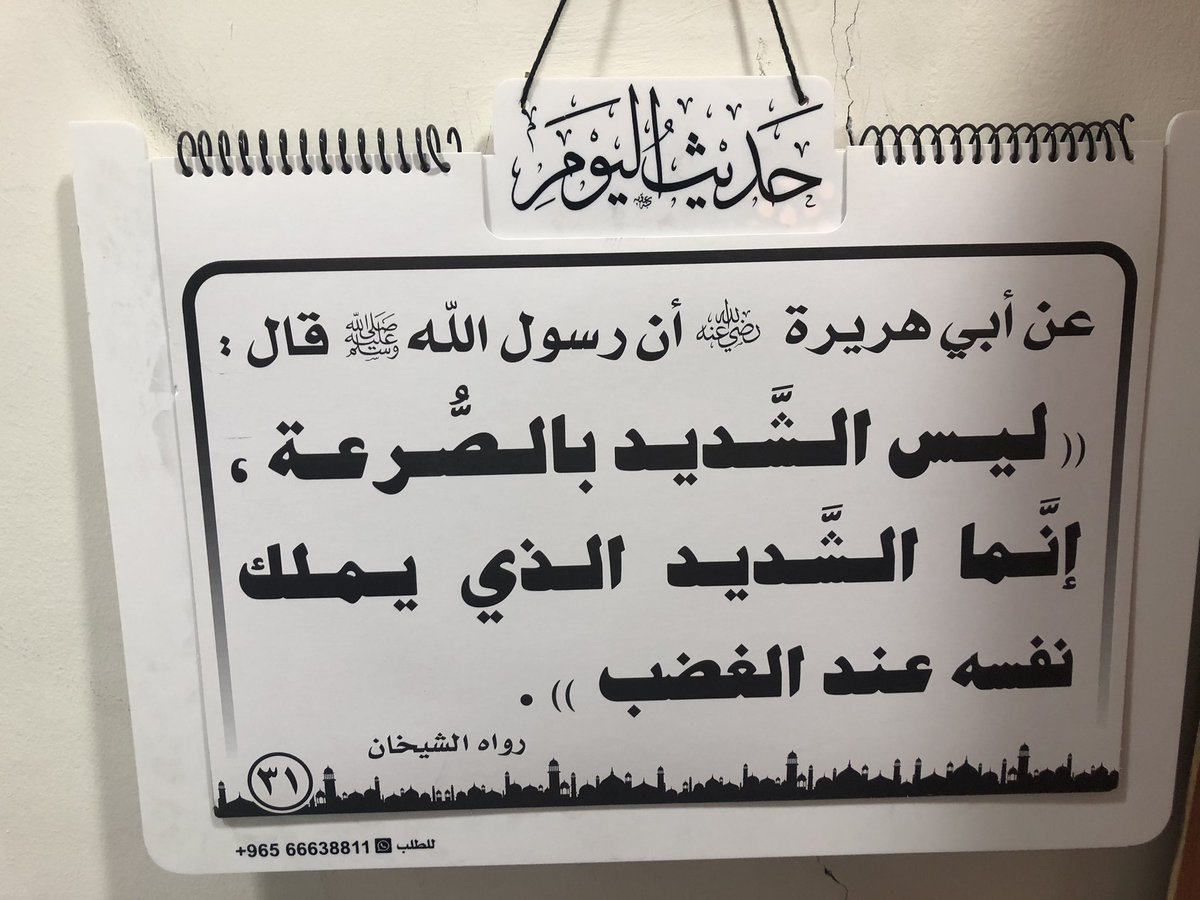 حَديثُ اليَوْمِ
عن أبي هريرة رضي الله عنه أن رسول الله ﷺ قال :
(( ليس الشَّديد بالصُّرعة ،
إنَّما الشَّديد الذي يملك
نفسه عند الغضب )) .
رواه الشيخان
٣١
للطلب +965 66638811